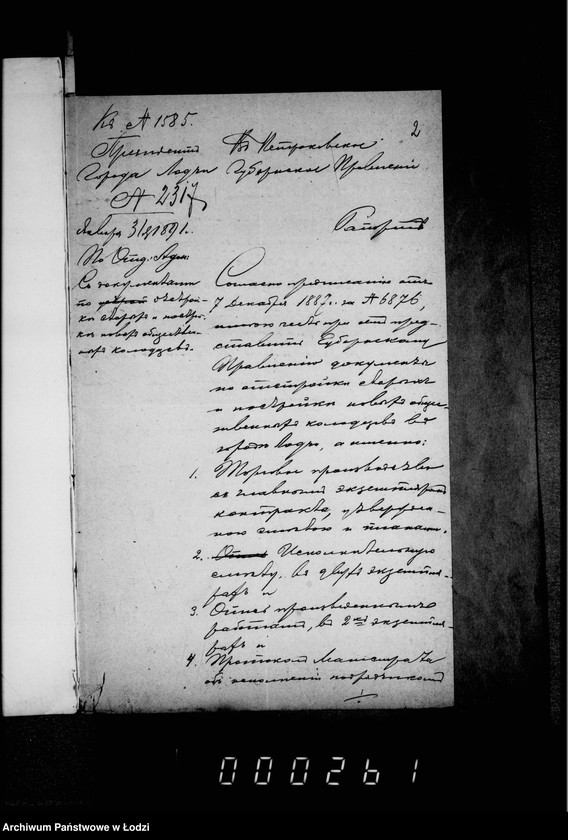 Къ № 1585.
2
Президентъ
Города Лодзи
№ 2317
Января 31 1891 г.
По Отд: Адм:
Съ документами
по построй-
ки старыхъ и построй-
ки новыхъ обществен-
ныхъ колодцевъ.
Въ Петроковское
Губернское Правленіе
Рапортъ
Согласно предписанію отъ
7 Декабря 1889 г. за № 6876,
имею честь при семъ пред-
ставить Губернскому
Правленію документы
по отстройкѣ старыхъ
и постройкѣ новыхъ общес-
твенныхъ колодцевъ въ
городѣ Лодзи, а именно:
1. Торговое производство
съ главнымъ экземпляромъ
контракта, утвержден-
ною сметою и планами.
2. Исполнительную
смету, въ двухъ экземпля-
рахъ и
3. Описи произведеннымъ
работамъ, въ 2хъ экземпля-
рахъ и
4. Протоколъ Магистрата
объ исполненіи подрядчикомъ
·/·
000261
Archiwum Państwowe w Łodzi